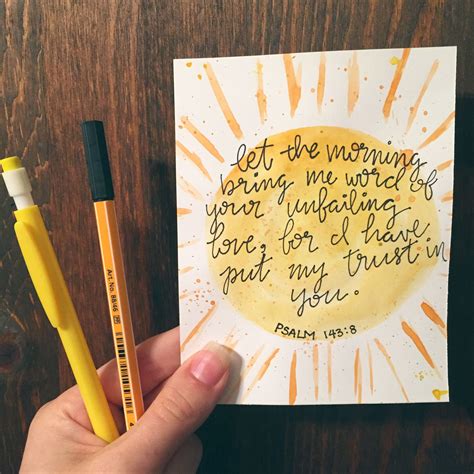 let the morning
bring me word of
your unfailing
love, for I have
put my trust in
you.
PSALM 143:8
Art.No. 88/46